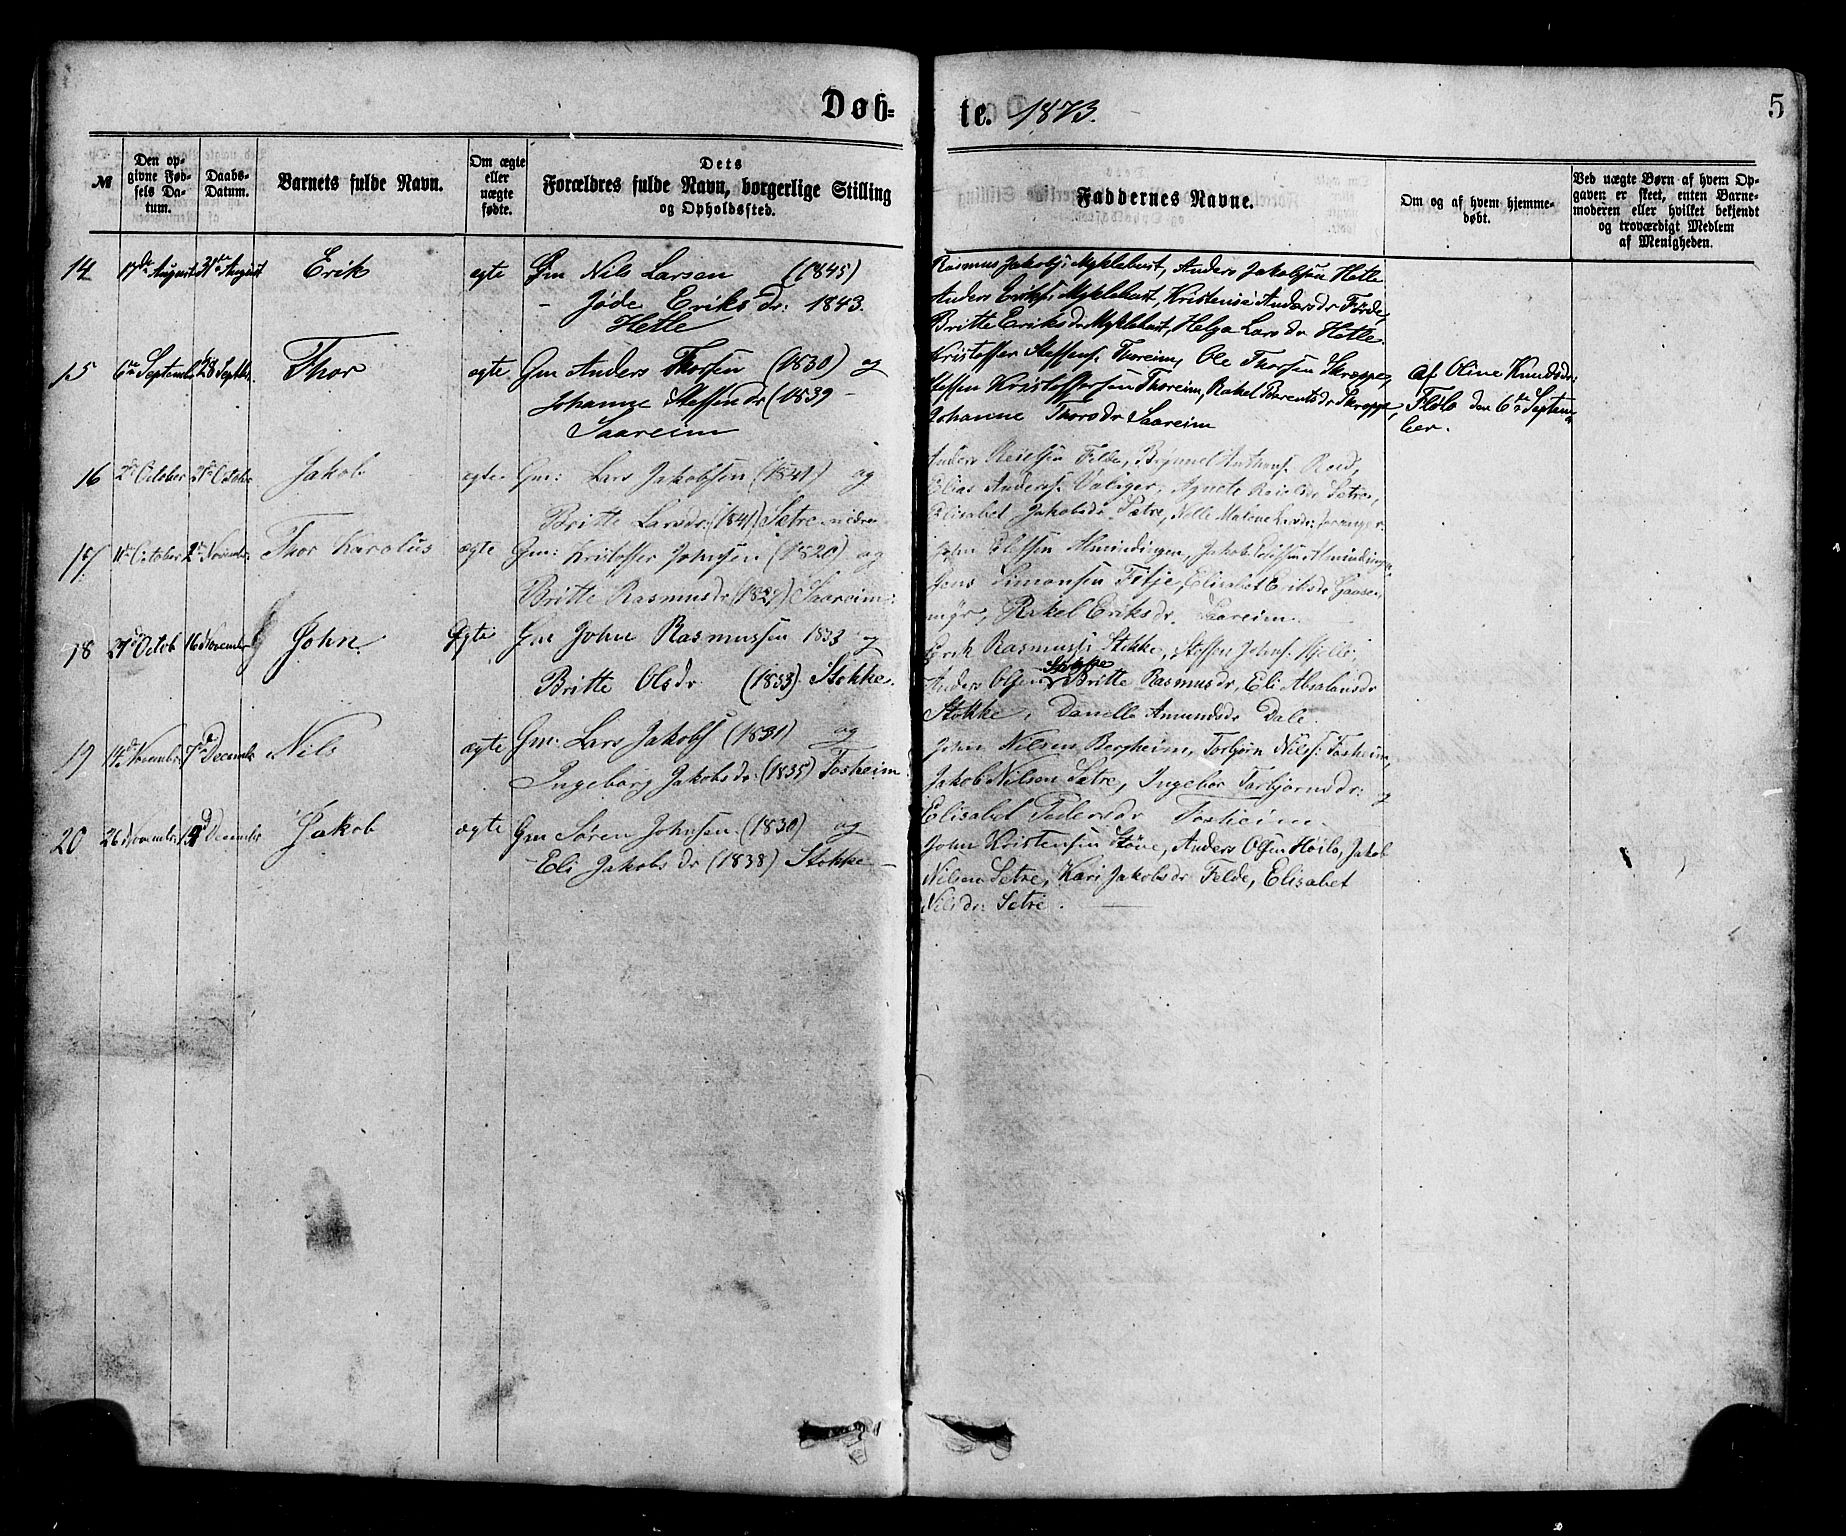 Døb-
te. 1873.
5
№
Den op-
givne Fød-
sels Da-
tum.
Daabs-
Datum.
Barnets fulde Navn.
Om ægte
eller
uægte
fødte.
Dets
Forældres fulde Navn, borgerlige Stilling
og Opholdssted.
Faddernes Navne.
Om og af hvem hjemme-
døbt.
Ved uægte Børn af hvem Op-
gaven er skeet, enten Barne-
moderen eller hvilket bekjendt
og troværdigt Medlem
af Menigheden.
14 17de August 31te August Erik egte Gm Nils Larsen (1845)
- Jøde Eriksdr: 1843.
Hetle
Rasmus Jakobs: Myklebust, Anders Jakobsen Hetle
Anders Eriks: Myklebust, Kristense Andersdr Førde,
Britte Eriksdr Myklebust, Helga Larsdr Hetle.
15 6te Septemb 28 Septbr. Thor egte Gm Anders Thorsen (1830) og
Johanne Steffensdr (1839 -
Saareim
Kristoffer Steffens: Thoreim, Ole Thorsen Skroppe,
Steffen Kristoffersen Thoreim, Rakel Barentsdr Skroppe,
Johanne Thorsdr Saareim
Af Oline Knudsdr:
Flølo den 6te Septem-
ber.
16 2de October 21de October Jakob egte Gm: Lars Jakobsen (1841) og
Britte Larsdr: (1841) Sætre nedre
Anders Felde, Brynnel Roed,
Elias Anders: Agnete Sætre,
Elisabet Jakobsdr Sætre, Malene
17 October 2de Novemb. Thor Karolus ægte Gm: Kristoffer Johnsen (1820) og
Britte Rasmusdr (1829) Saareim:
John Elefsen Almindingen, Jakob Almindingen
Jens Simonsen Fitje, Elisabet Gaasen
myr, Rakel Eriksdr. Saareim.
18 27de Octob 16de November John. Egte Gm John Rasmussen 1833 og
Britte Olsdr (1833) Stokke.
Erik Rasmuss: Stokke, Steffen Johns:
Anders Olsen Stokke Britte Rasmusdr, Eli Absalonsdr
Stokke, Danille Amundsdr Dale.
19 14de Novembr 7de December Nils ægte Gm: Lars Jakobs (1831) og
Ingeborg Jakobsdr: (1835) Fosheim
John Nilsen Bergheim, Torbjørn Nils: Fosheim,
Jakob Nilsen Sætre, Ingebor Torbjørnsdr: og
Elisabet Pedersdr Fosheim.
20 26 November December Jakob ægte Gm Søren Johnsen (1830) og
- Eli Jakobsdr (1838) Stokke -
John Kristensen Støve, Anders Olsen Høilo, Jakob
Nilsen Sætre, Kari Jakobsdr Felde, Elisabet
Nilsdr: Sætre.